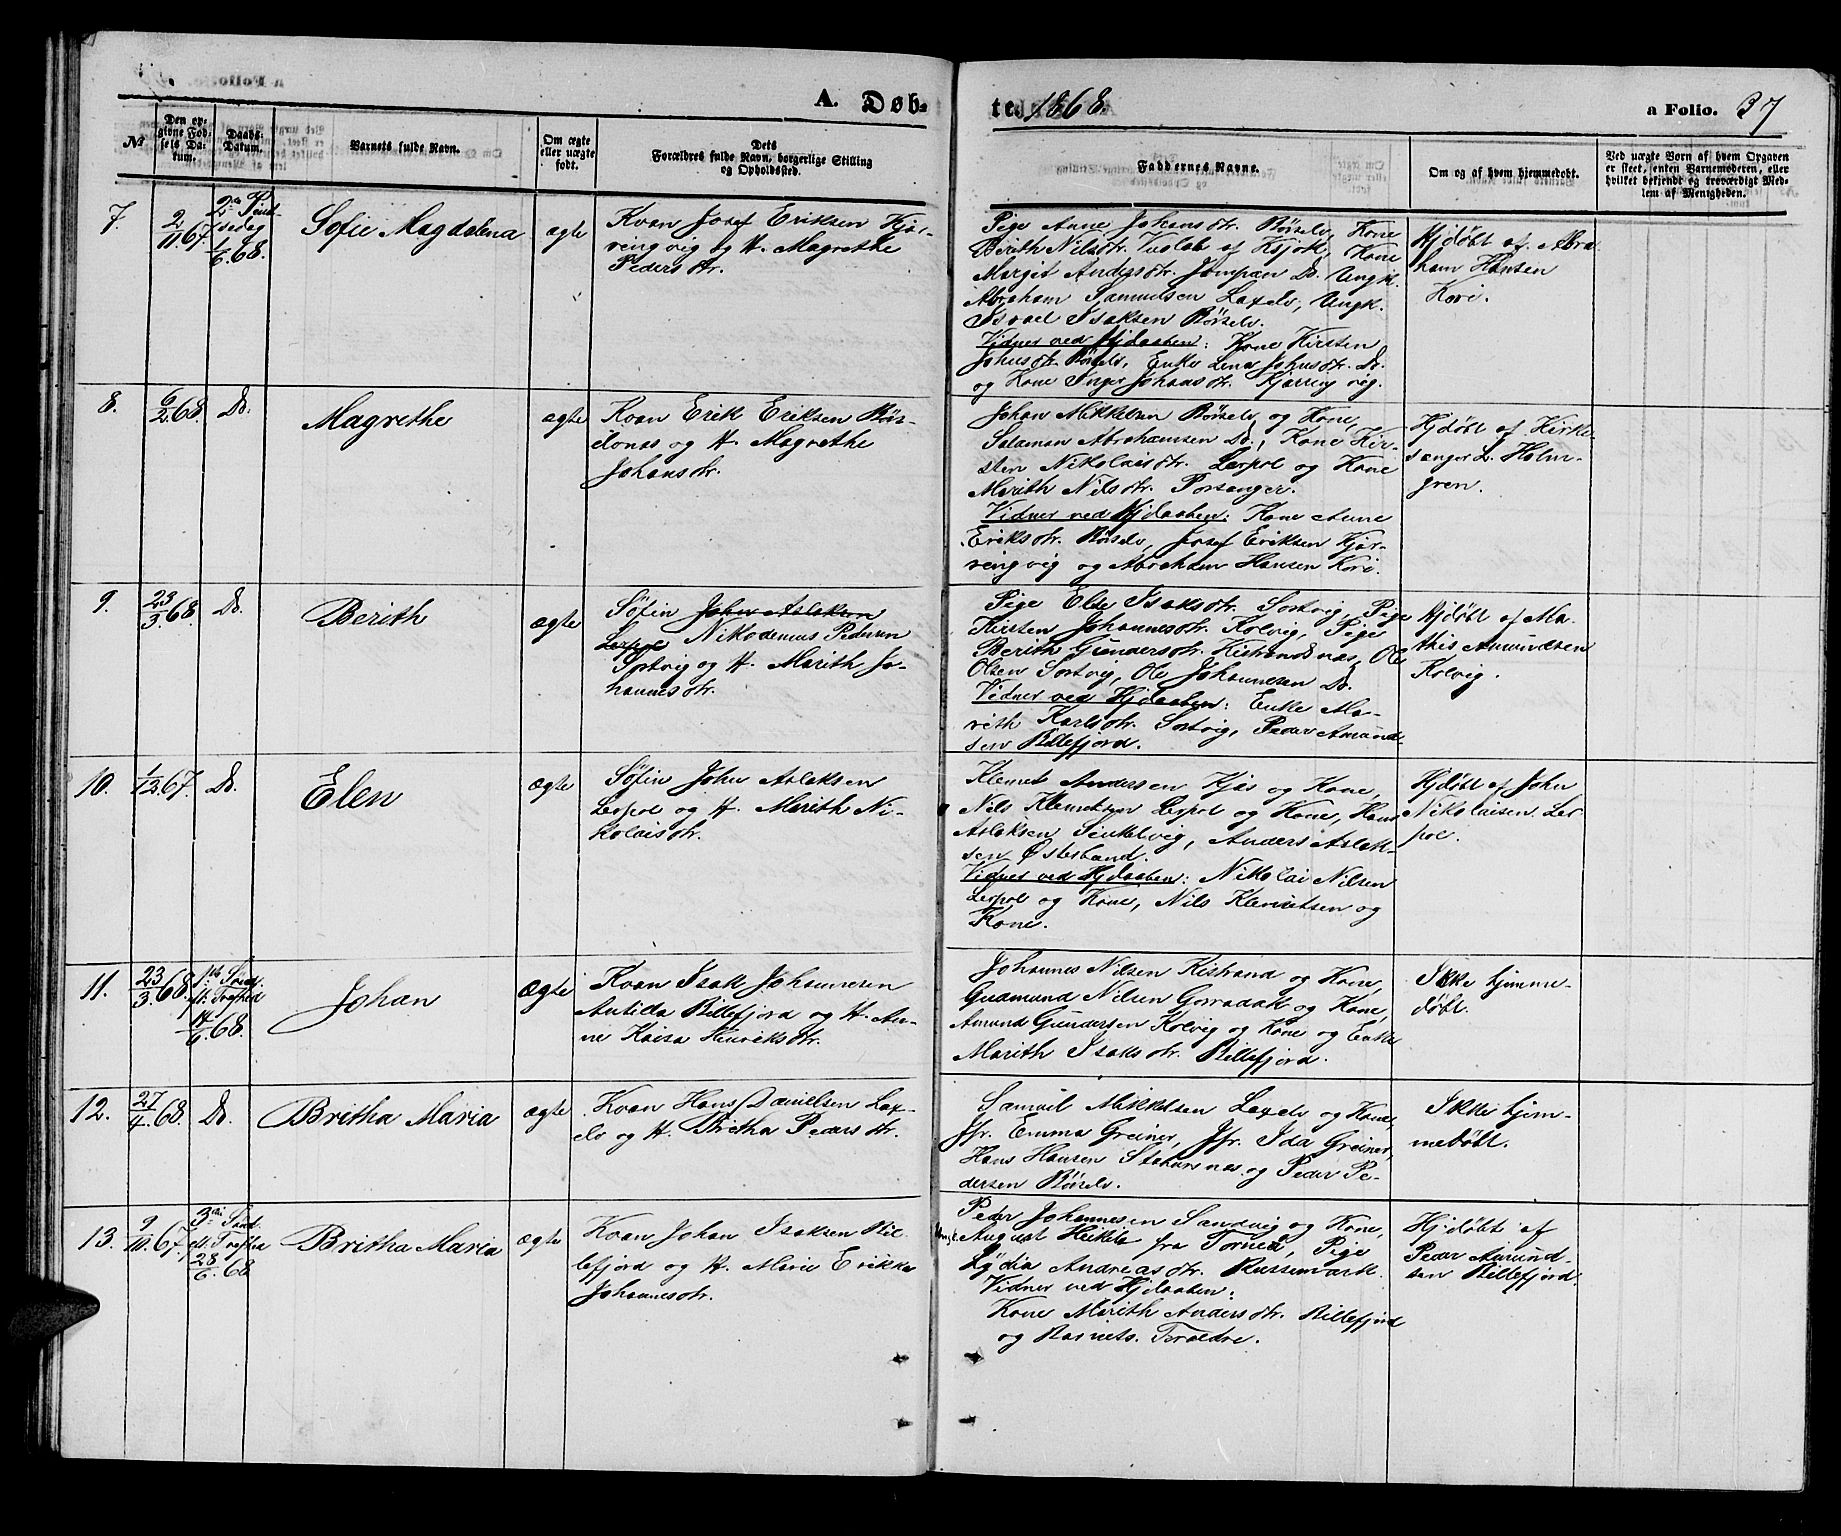 A. Døb-
te. 1868.
a Folio. 37
№
Den op-
givne Fød-
sels Da-
tum.
Daabs-
Datum.
Barnets fulde Navn.
Om ægte
eller uægte
født.
Dets
Forældres fulde Navn, borgerlige Stilling
og Opholdssted.
Faddernes Navne.
Om og af hvem hjemmedøbt.
Ved uægte Børn af hvem Opgaven
er skeet, enten Barnemoderen, eller
hvilket bekjendt og troværdigt Med-
lem af Menigheden.
7.
2/11 67
2den Pint-
sedag
1/6 68.
Sofie Magdalena
ægte
Kvan Josef Eriksen Kjær-
ringvig og H. Magrethe
Pedersdtr.
Pige Anne Johansdtr. Børselv, Kone
Berith Nilsdtr.
Margit Andersdtr. Jompan Do. Ungk.
Abraham Samuelsen Laxelv, Ungk.
Israel Isaksen Børselv.
Vidner ved Hjdaaben: Kone Kirsten
Johnsdtr. Børselv, Enke Lena Johnsdtr. Do.
og Kone Inger Johansdtr. Kjærringvig.
Hjdøbt af Abra
ham Hansen
Kori.
8.
6/2 68.
Do.
Magrethe
ægte
Kvan Erik Eriksen Børs-
elvnæs og H. Magrethe
Johansdtr.
Johan Mikkelsen Børselv og Kone,
Salamon Abrahamsen Do., Kone Kir-
sten Nikolaisdtr. Lerpol og Kone
Marith Nilsdtr. Porsanger.
Vidner ved Hjdaaben: Kone Anne
Eriksdtr. Børselv, Josef Eriksen Kjær-
ringvig og Abraham Hansen Kori.
Hjdøbt af Kirke-
sanger L. Holm-
gren.
9.
23/3 68.
Do.
Berith
ægte
Søfin John Aslaksen
Lerpol Nikodemus Pedersen
Sortvig og H. Marith Jo-
hannesdtr.
Pige Else Isaksdtr. Sortvig, Pige
Kirsten Johannesdtr. Kolvig, Pige
Berith Gundersdtr. Kistrandsnæs, Ole
Olsen Sortvig, Ole Johannesen Do.
Vidner ved Hjdaaben: Enke Ma-
rith Karlsdtr. Sortvig, Peder Amund-
sen Billefjord.
Hjdøbt af Ma-
this Amundsen
Kolvig.
10.
1/12 67.
Do.
Elen
ægte
Søfin John Aslaksen
Lerpol og H. Marith Ni-
kolaisdtr.
Klemet Andersen Kjæs og Kone,
Nils Klemetsen Lerpol og Kone, Hans
Aslaksen Sinkelvig, Anders Aslak-
sen Østerband.
Vidner ved Hjdaaben: Nikolai Nilsen
Lerpol og Kone, Nils Klemetsen og
Kone.
Hjdøbt af John
Nikolaisen Ler-
pol.
11.
23/3 68.
1ste Sønd.
e. Trefhed
14/6 68.
Johan
ægte
Kvan Isak Johannesen
Antilla Billefjord og H. An-
ne Kaisa Henriksdtr.
Johannes Nilsen Kistrand og Kone,
Gudmund Nilsen Gorradak og Kone,
Amund Gundersen Kolvig og Kone og Enke
Marith Isaksdtr. Billefjord.
Ikke hjemme-
døbt.
12.
27/4 68.
Do.
Britha Maria
ægte
Kvan Hans Danielsen Lax-
elv og H. Britha Pedersdtr.
Samuel Mikkelsen Laxelv og Kone,
Jfr. Emma Greiner, Jfr. Ida Greiner,
Hans Hansen Stabursnæs og Peder Pe-
dersen Børselv.
Ikke hjem-
medøbt.
13.
9/10 67.
3die Sønd.
e. Trefhed
28/6 68
Britha Maria
ægte
Kvan Johan Isaksen Bil-
lefjord og H. Marie Erikke
Johannesdtr.
Peder Johannesen Sandvig og Kone,
Ungk. August Heikila fra Torneå, Pige
Lydia Andreasdtr. Russemark.
Vidner ved Hjdaaben:
Kone Marith Andersdtr. Billefjord
og Barnets Foreldre.
Hjdøbt af
Peder Amund-
sen Billefjord.